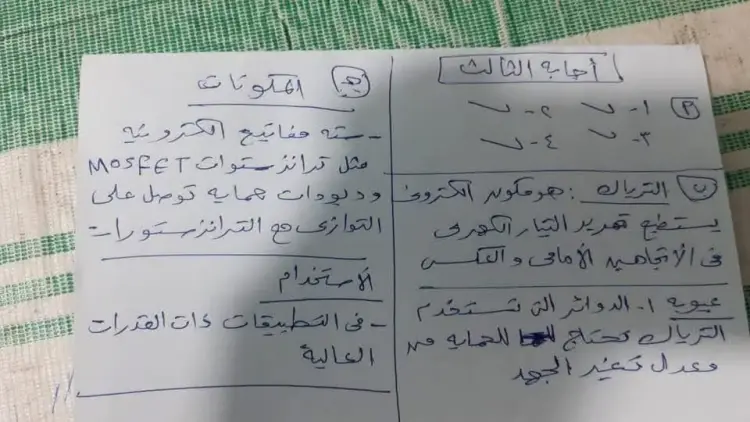 أجابة الثالث
P
١- ب ٢- ب
٣- ب ٤- ب
ب الترياك : هو مكون الكترونى
يستطيع تمرير التيار الكهربى
فى الاتجاهين الأمامى والعكسى
عيوبه ١- الدوائر التى تستخدم
الترياك تحتاج للحمايه من
معدل تغير الجهد
جـ المكونات
- سته مفاتيح الكترونيه
مثل ترانزستورات MOSFET
وديودات حمايه توصل على
التوازى مع الترانزستورات
الاستخدام
- فى التطبيقات ذات القدرات
العالية